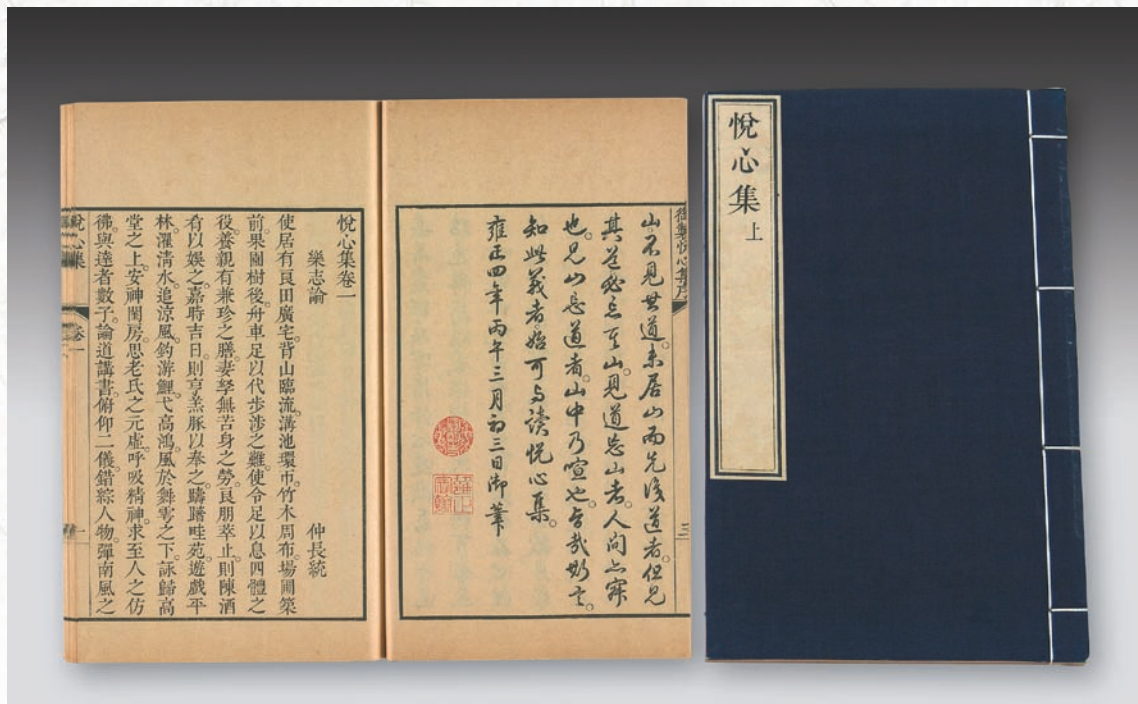 悅心集 上
御製悅心集序
三
山。不見其道。未居山而先識道者。但見
其道。必忘其山。見道忘山者。人间亦寂
也。見山忘道者。山中乃喧也。旨哉斯言。
知此義者。始可与讀悅心集。
雍正四年丙午三月初三日御筆
悅心集卷一
樂志論 仲長統
使居有良田廣宅。背山臨流。溝池環帀。竹木周布。場圃築
前。果園樹後。舟車足以代步涉之難。使令足以息四體之
役。養親有兼珍之膳。妻孥無苦身之勞。良朋萃止。則陳酒
肴以娛之。嘉時吉日。則亨羔豚以奉之。躊躇畦苑。遊戲平
林。濯清水。追涼風。釣游鯉。弋高鴻。風於舞雩之下。詠歸高
堂之上。安神閨房。思老氏之元虛。呼吸精神。求至人之仿
彿。與達者數子。論道講書。俯仰二儀。錯綜人物。彈南風之
悅心集
卷一
一